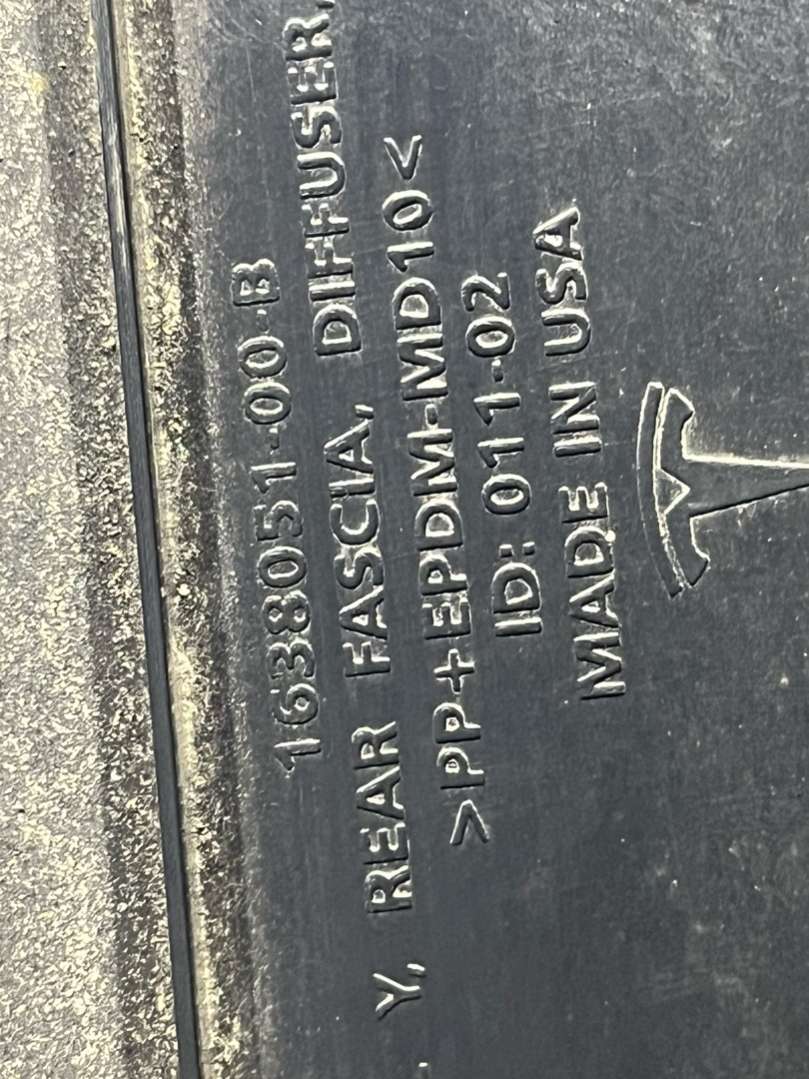 1638051-00-B
Y, REAR FASCIA, DIFFUSER,
>PP+EPDM-MD10<
ID: 011-02
MADE IN USA